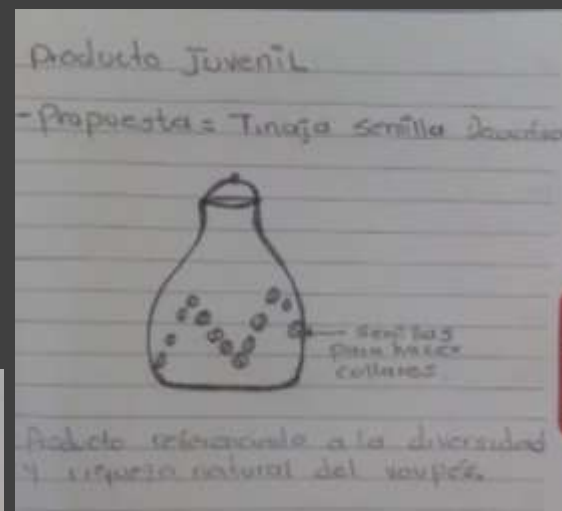 Producto Juvenil
- Propuesta = Tinaja semilla
semillas
para hacer
collares
Producto referenciando a la diversidad
y riqueza natural del vaupés.